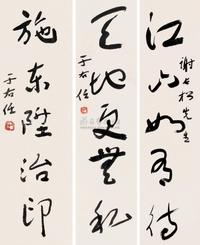 江山如有待
松先生
天地更無私
于右任
施東陞治印
于右任